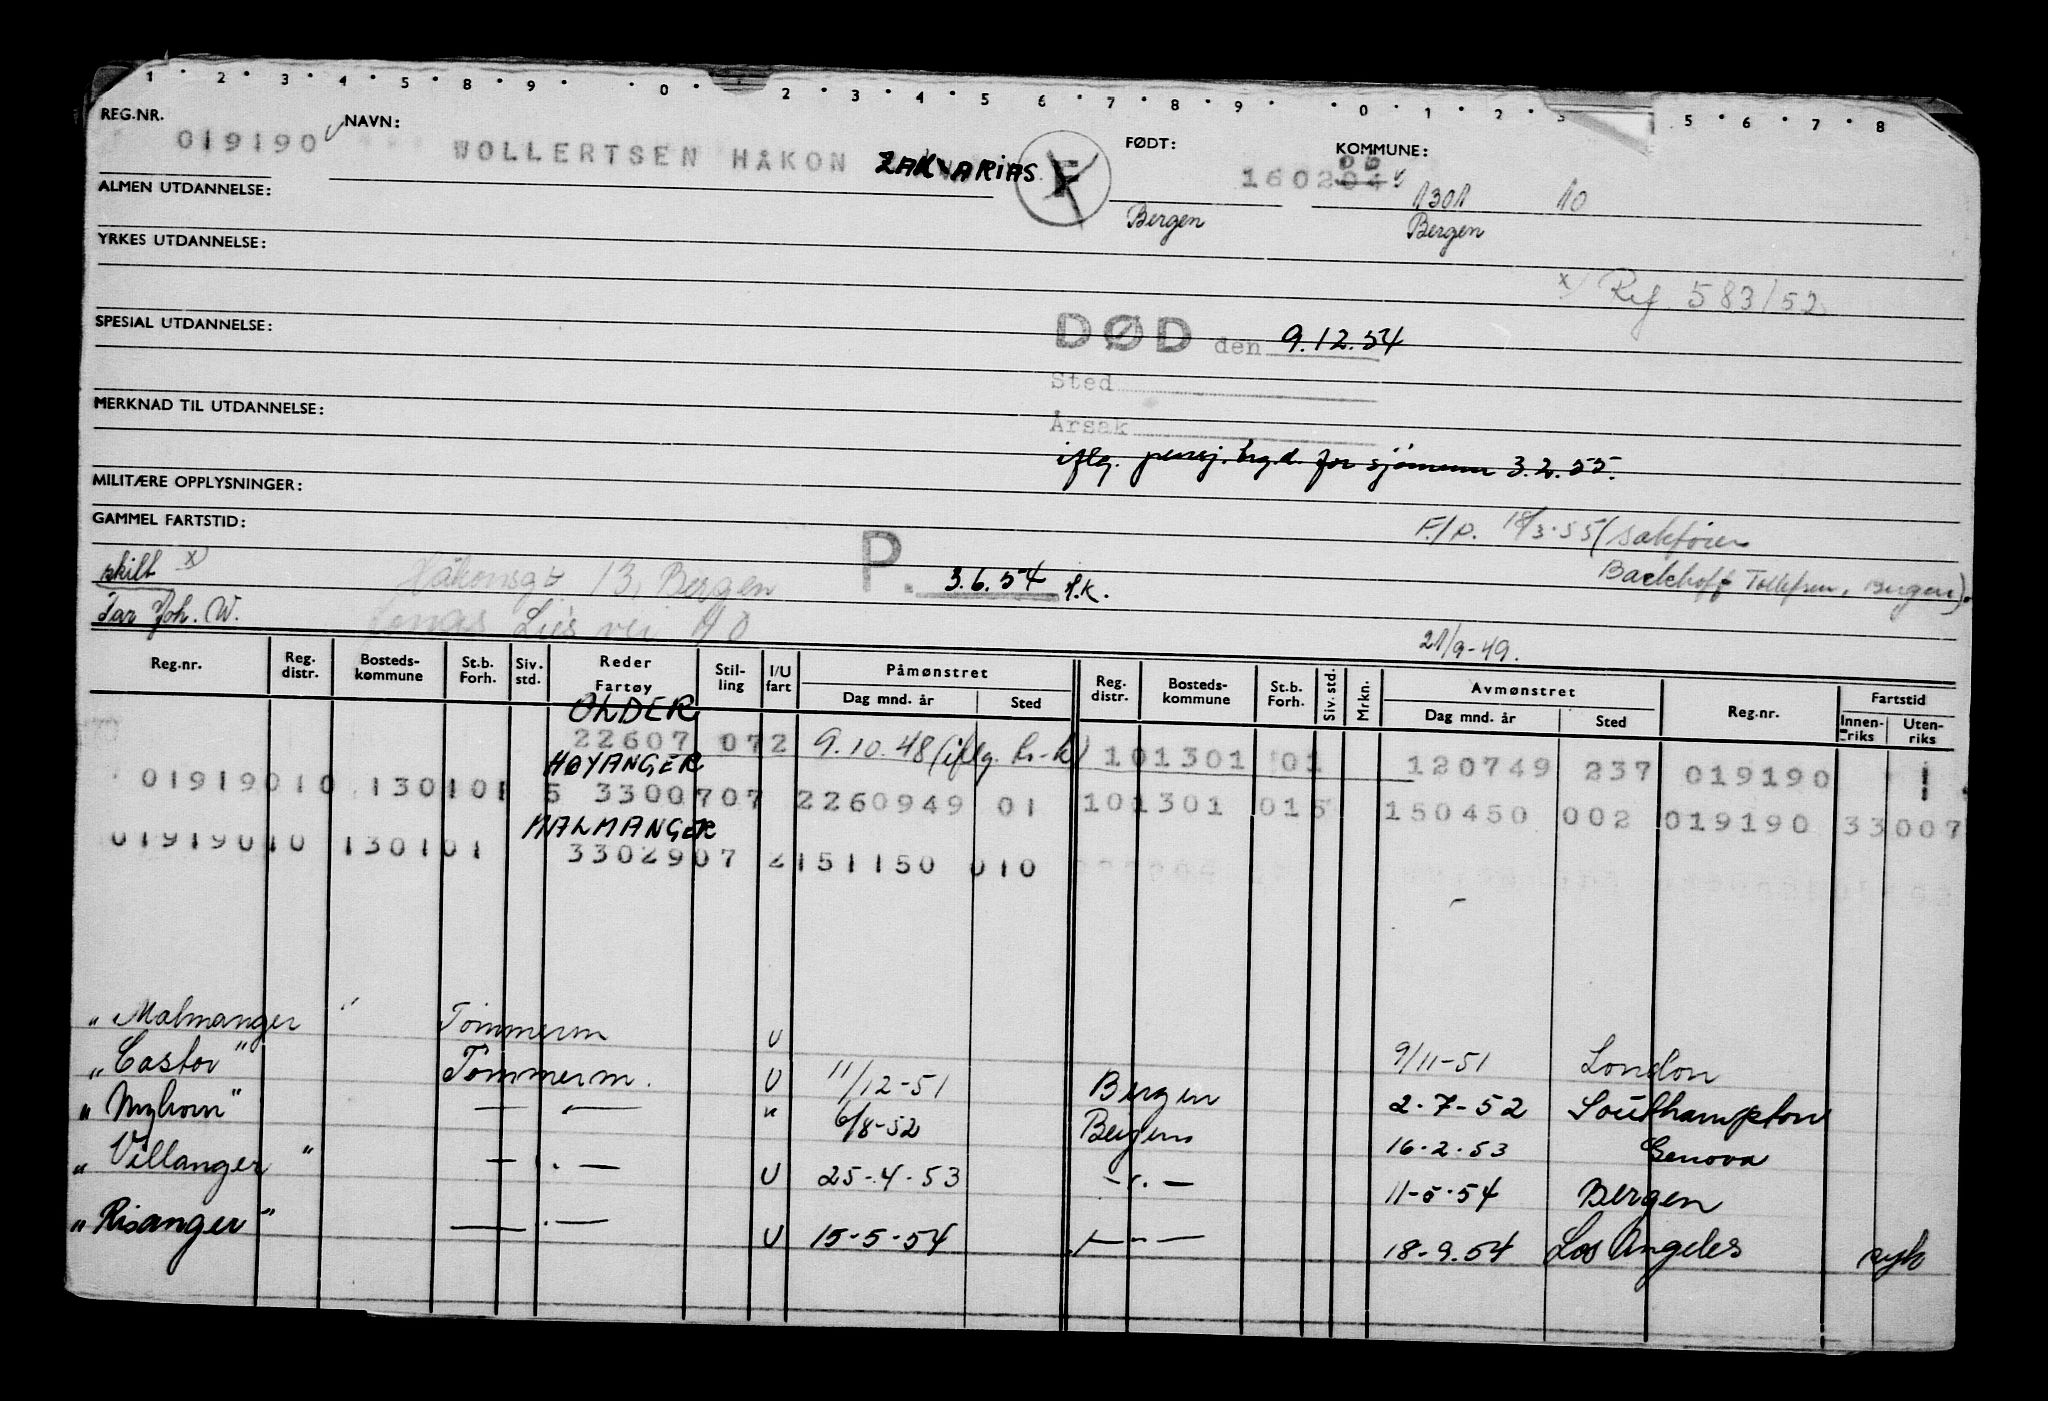 1 2 3 4 5 8 9 0 2 3 4 5 6 7 8 9 0 1 2 3 5 6 7 8
REG.NR. NAVN: FØDT: KOMMUNE:
019190 WOLLERTSEN HÅKON ZAKARIAS F 160204 06 1301 10
ALMEN UTDANNELSE: Bergen Bergen
YRKES UTDANNELSE:
x) Ref 583/52
SPESIAL UTDANNELSE:
DØD den 9.12.54
Sted
MERKNAD TIL UTDANNELSE:
Årsak
iflg. pensj.trgd. for sjömenn 3.2.55.
MILITÆRE OPPLYSNINGER:
GAMMEL FARTSTID:
F/P. 18/3-55 (sakfører
Backhoff Tollefsen, Bergen).
skilt x) Håkonsgt 13, Bergen P. 3.6.54 f.k.
Far Joh. W. Jonas Lies vei 40
21/9-49.
Reg.nr. Reg. distr. Bosteds-kommune St.b. Forh. Siv. std. Reder Fartøy Stil-ling I/U fart Påmønstret Dag mnd. år Sted Reg. distr. Bosteds-kommune St.b. Forh. Siv. std. Mrkn. Avmønstret Dag mnd. år Sted Reg.nr. Fartstid Innen-riks Uten-riks
OLDER
22607 072 9.10.48 (iflg. h-k) 101301 01 120749 237 019190 1
HØYANGER
019190 10 130101 5 3300707 2260949 01 101301 015 150450 002 019190 33007
MALMANGER
019190 10 130101 3302907 2151150 010
"Malmanger " Tömmerm U 9/11-51 London
"Castor" Tömmerm. U 11/12-51 Bergen 2-7-52 Southampton
"Myhorn" — — " 6/8-52 Bergen 16-2-53 Genova
"Villanger " — . — U 25-4-53 — . — 11-5-54 Bergen
"Risanger" — . — U 15-5-54 — " — 18-9.54 Los Angeles syk